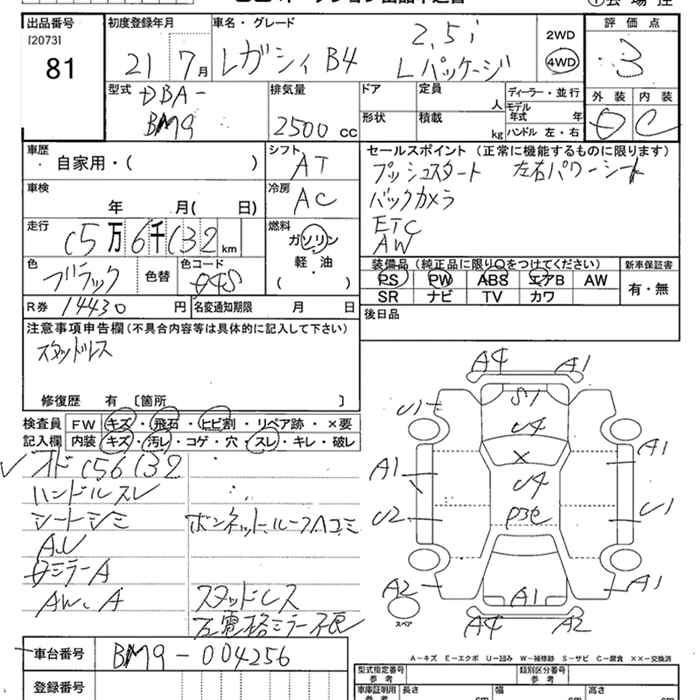 出品番号 初度登録年月 車名・グレード 評価点
[2073]
81
21 7月 レガシィ B4 2.5i Lパッケージ 2WD 4WD 3
型式 DBA-BM9 排気量 2500cc ドア 定員 人 ディーラー・並行 外装 内装
形状 積載 kg モデル年式 年 ハンドル 左・右 D C
車歴 自家用・( ) シフト AT セールスポイント (正常に機能するものに限ります)
プッシュスタート 左右パワーシート
車検 年 月( 日) 冷房 AC バックカメラ
ETC
AW
走行 (5万6千(32 km 燃料 ガソリン 軽・油 ( )
装備品 (純正品に限り○をつけてください) 新車保証書
PS PW ABS エアB AW 有・無
SR ナビ TV カワ
色 ブラック 色替 色コード
R券 14430円 名変通知期限 月 日 後日品
注意事項申告欄 (不具合内容等は具体的に記入して下さい)
スタッドレス
修復歴 有 [箇所 ]
検査員 FW キズ・飛石・ヒビ割・リペア跡・×要
記入欄 内装 キズ・汚レ・コゲ・穴・スレ・キレ・破レ
オド(56(32
ハンドルスレ
シートシミ ボンネット、ルーフヘコミ
AU
ミラーA
AW、A スタッドレス
左電格ミラー不良
車台番号 BM9-004256
登録番号
A4 A1
S1
U1 U4
X A1
A1 U4
U2 P3e U1
A2 A1 A1
スペア A4 A2
A-キズ E-エクボ U-凹み W-補修跡 S-サビ C-腐食 ××-交換済
型式指定番号 参考 類別区分番号 参考
車庫証明用 参考 長さ cm 幅 cm 高さ cm